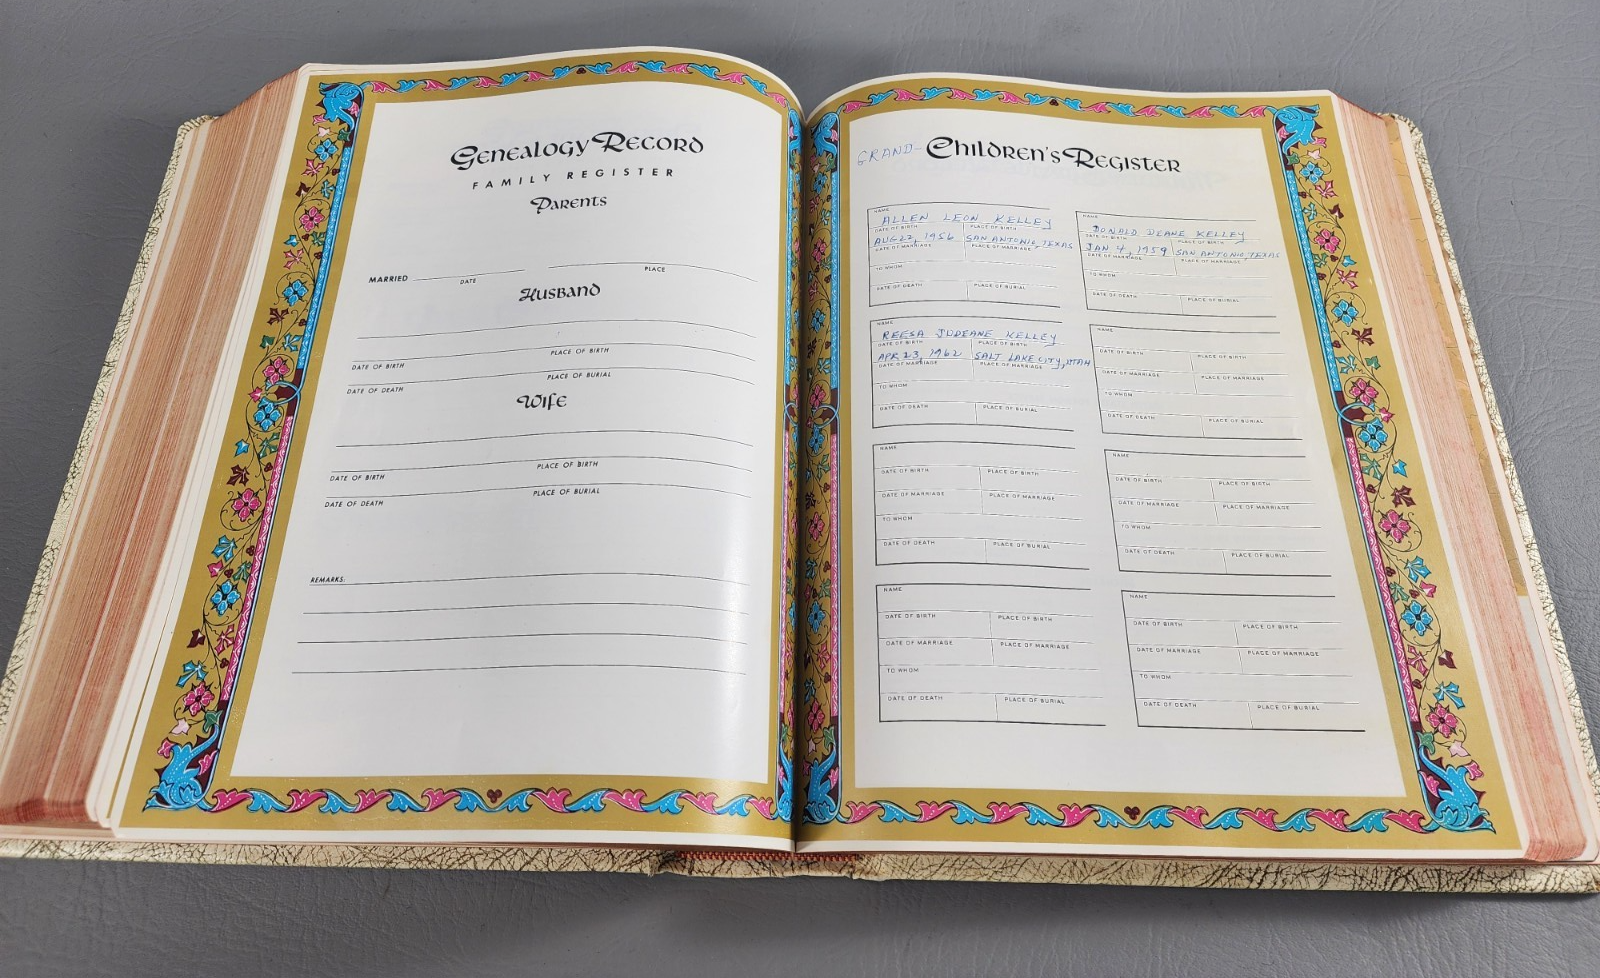 Genealogy Record
FAMILY REGISTER
Parents
MARRIED
DATE
PLACE
Husband
DATE OF BIRTH
PLACE OF BIRTH
DATE OF DEATH
PLACE OF BURIAL
Wife
DATE OF BIRTH
PLACE OF BIRTH
DATE OF DEATH
PLACE OF BURIAL
REMARKS:
GRAND- Children's Register
NAME
ALLEN LEON KELLEY
DATE OF BIRTH PLACE OF BIRTH
AUG 22, 1956 SAN ANTONIO, TEXAS
DATE OF MARRIAGE PLACE OF MARRIAGE
TO WHOM
DATE OF DEATH PLACE OF BURIAL
NAME
DONALD DEANE KELLEY
DATE OF BIRTH PLACE OF BIRTH
JAN 4, 1959 SAN ANTONIO, TEXAS
DATE OF MARRIAGE PLACE OF MARRIAGE
TO WHOM
DATE OF DEATH PLACE OF BURIAL
NAME
REESA JUDEANE KELLEY
DATE OF BIRTH PLACE OF BIRTH
APR 23, 1962 SALT LAKE CITY, UTAH
DATE OF MARRIAGE PLACE OF MARRIAGE
TO WHOM
DATE OF DEATH PLACE OF BURIAL
NAME
DATE OF BIRTH PLACE OF BIRTH
DATE OF MARRIAGE PLACE OF MARRIAGE
TO WHOM
DATE OF DEATH PLACE OF BURIAL
NAME
DATE OF BIRTH PLACE OF BIRTH
DATE OF MARRIAGE PLACE OF MARRIAGE
TO WHOM
DATE OF DEATH PLACE OF BURIAL
NAME
DATE OF BIRTH PLACE OF BIRTH
DATE OF MARRIAGE PLACE OF MARRIAGE
TO WHOM
DATE OF DEATH PLACE OF BURIAL
NAME
DATE OF BIRTH PLACE OF BIRTH
DATE OF MARRIAGE PLACE OF MARRIAGE
TO WHOM
DATE OF DEATH PLACE OF BURIAL
NAME
DATE OF BIRTH PLACE OF BIRTH
DATE OF MARRIAGE PLACE OF MARRIAGE
TO WHOM
DATE OF DEATH PLACE OF BURIAL